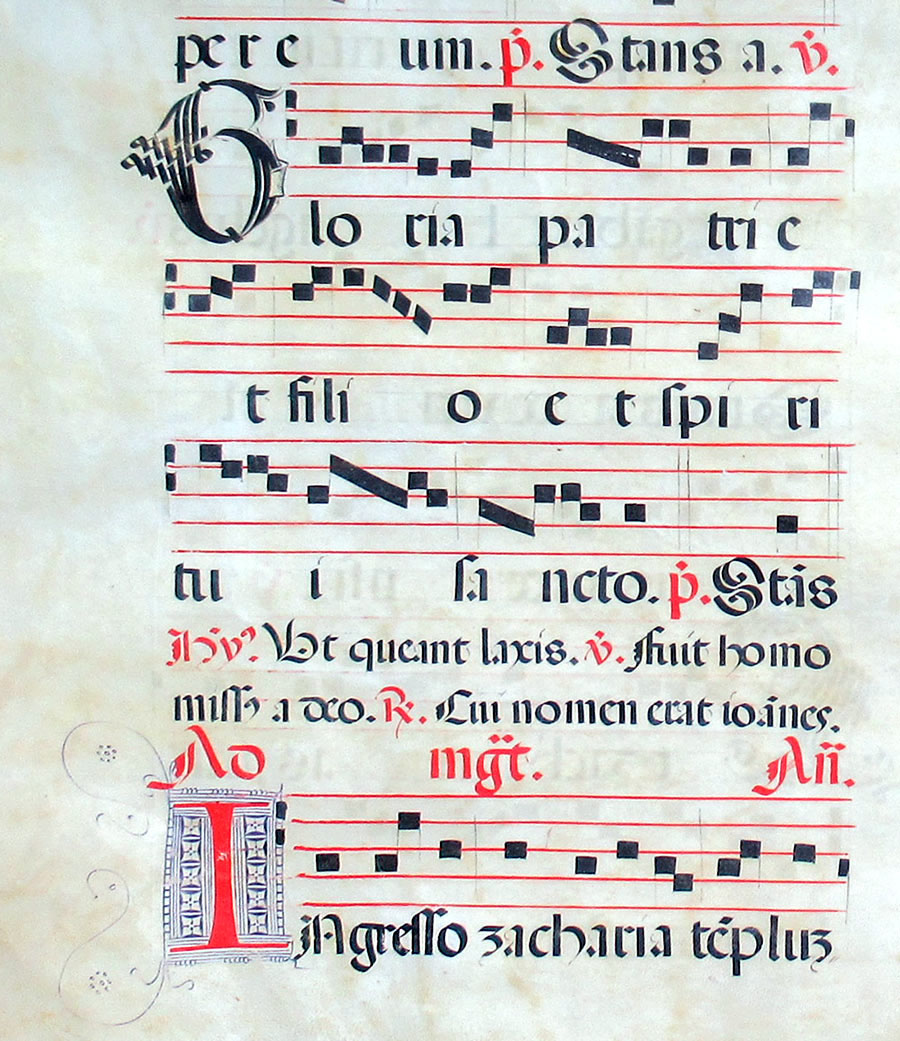 per e um. p̃. Stans a. v̇.
Glo ria pa tri e
t fili o e t spi ri
tu i sa ncto. p̃. Stãs
Hỹ. Ut queant laxis. v̇. Fuit homo
miss' a deo. ℟. Cui nomen erat ioãnes.
Ad mg̃t. Añ.
INgresso zacharia tẽpluz